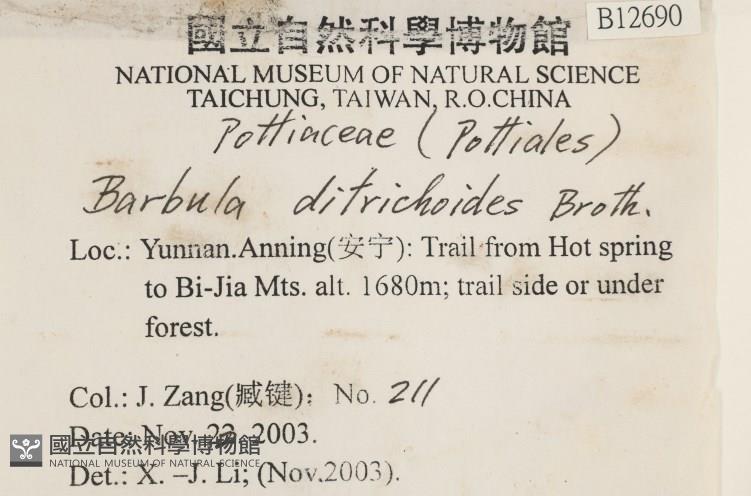 B12690
國立自然科學博物館
NATIONAL MUSEUM OF NATURAL SCIENCE
TAICHUNG, TAIWAN, R.O.CHINA
Pottiaceae (Pottiales)
Barbula ditrichoides Broth.
Loc.: Yunnan.Anning(安宁): Trail from Hot spring
to Bi-Jia Mts. alt. 1680m; trail side or under
forest.
Col.: J. Zang(臧键): No. 211
Date: Nov. 2003.
國立自然科學博物館
NATIONAL MUSEUM OF NATURAL SCIENCE
Det.: X. –J. Li; (Nov.2003).